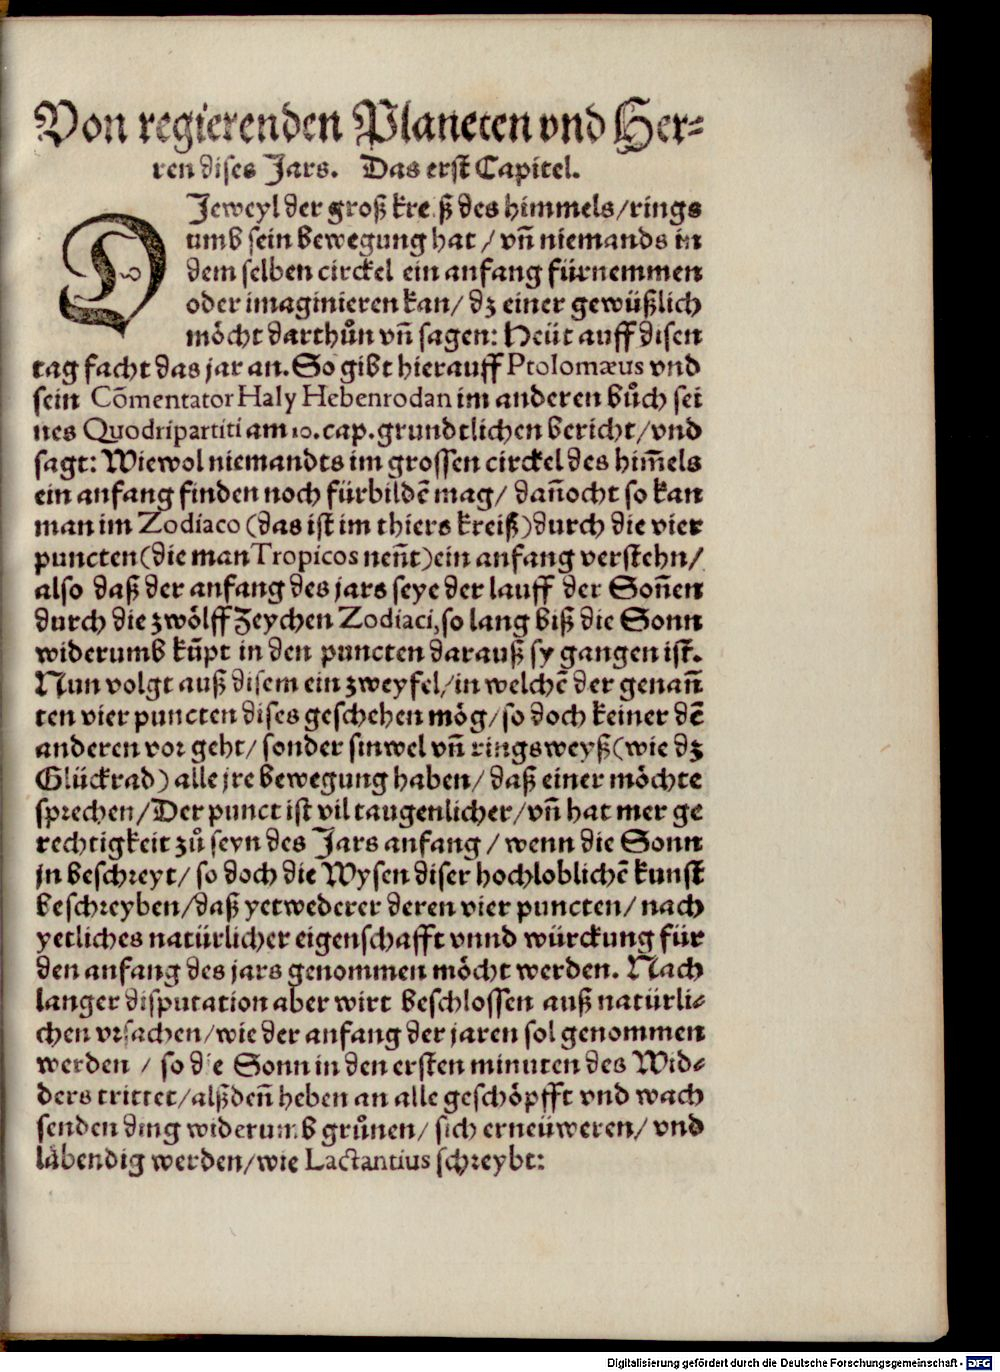 Von regierenden Planeten vnd Her⸗
ren dises Jars. Das erst Capitel.
DJeweyl der groß kreiß des himmels/rings
umb sein bewegung hat/vñ niemands in
dem selben circkel ein anfang fürnemmen
oder imaginieren kan/dz einer gewüßlich
möcht darthůn vñ sagen: Heüt auff disen
tag facht das jar an. So gibt hierauff Ptolomæus vnd
sein Cõmentator Haly Hebenrodan im anderen bůch sei
nes Quodripartiti am 10. cap. grundtlichen bericht/vnd
sagt: Wiewol niemandts im grossen circkel des him̃els
ein anfang finden noch fürbildẽ mag/dañocht so kan
man im Zodiaco (das ist im thiers kreiß) durch die vier
puncten (die man Tropicos neñt) ein anfang verstehn/
also daß der anfang des jars seye der lauff der Soñen
durch die zwölff Zeychen Zodiaci, so lang biß die Sonn
widerumb kũpt in den puncten darauß sy gangen ist.
Nun volgt auß disem ein zweyfel/in welchẽ der genañ
ten vier puncten dises geschehen mög/so doch keiner dẽ
anderen vor geht/sonder sinwel vñ ringsweyß (wie dz
Glückrad) alle jre bewegung haben/daß einer möchte
sprechen/Der punct ist vil taugenlicher/vñ hat mer ge
rechtigkeit zů seyn des Jars anfang/wenn die Sonn
jn beschreyt/so doch die Wysen diser hochloblichẽ kunst
beschreyben/daß yetwederer deren vier puncten/nach
yetliches natürlicher eigenschafft vnnd würckung für
den anfang des jars genommen möcht werden. Nach
langer disputation aber wirt beschlossen auß natürli⸗
chen vrsachen/wie der anfang der jaren sol genommen
werden / so die Sonn in den ersten minuten des Wid⸗
ders trittet/alßdeñ heben an alle geschöpfft vnd wach
senden ding widerumb grůnen/sich erneüweren/vnd
läbendig werden/wie Lactantius schreybt:
Digitalisierung gefördert durch die Deutsche Forschungsgemeinschaft - DFG